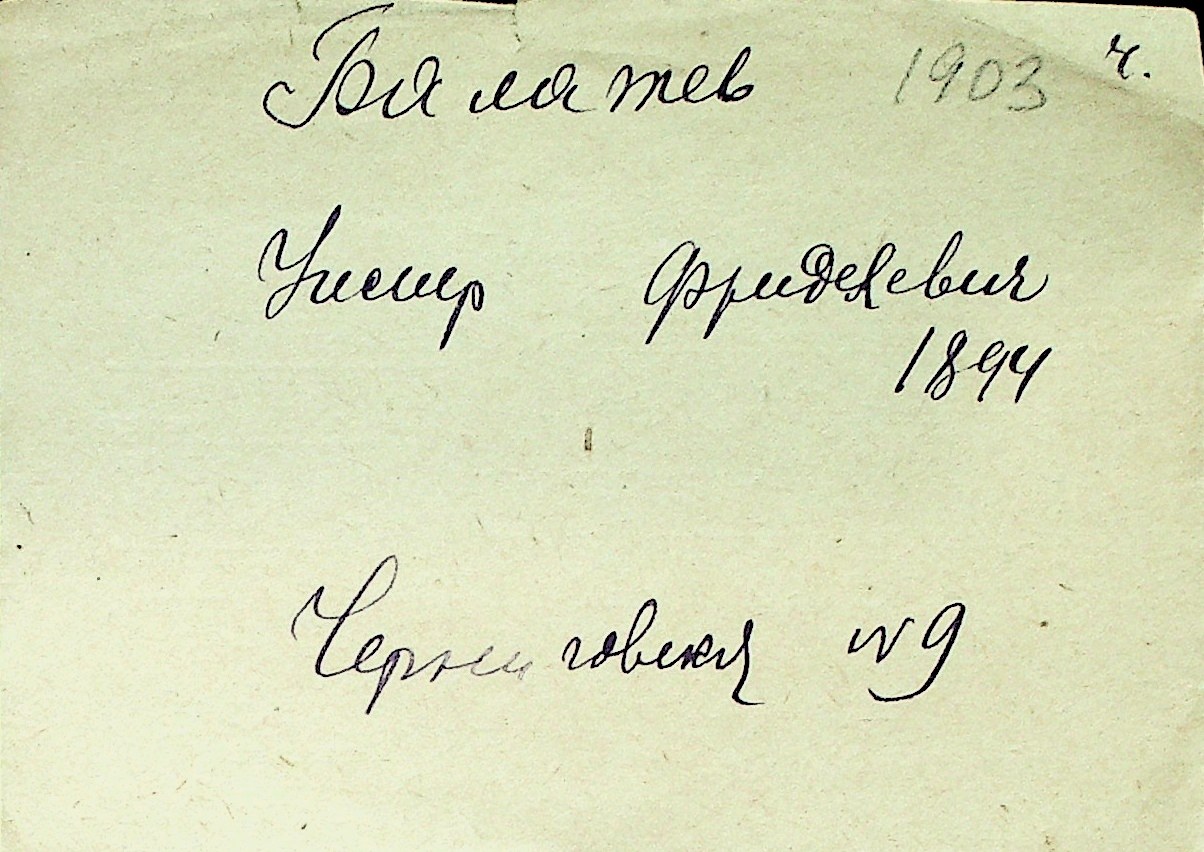 Балатев 1903 ч.
Унсир Фриделевич
1894
Черниговская N 9